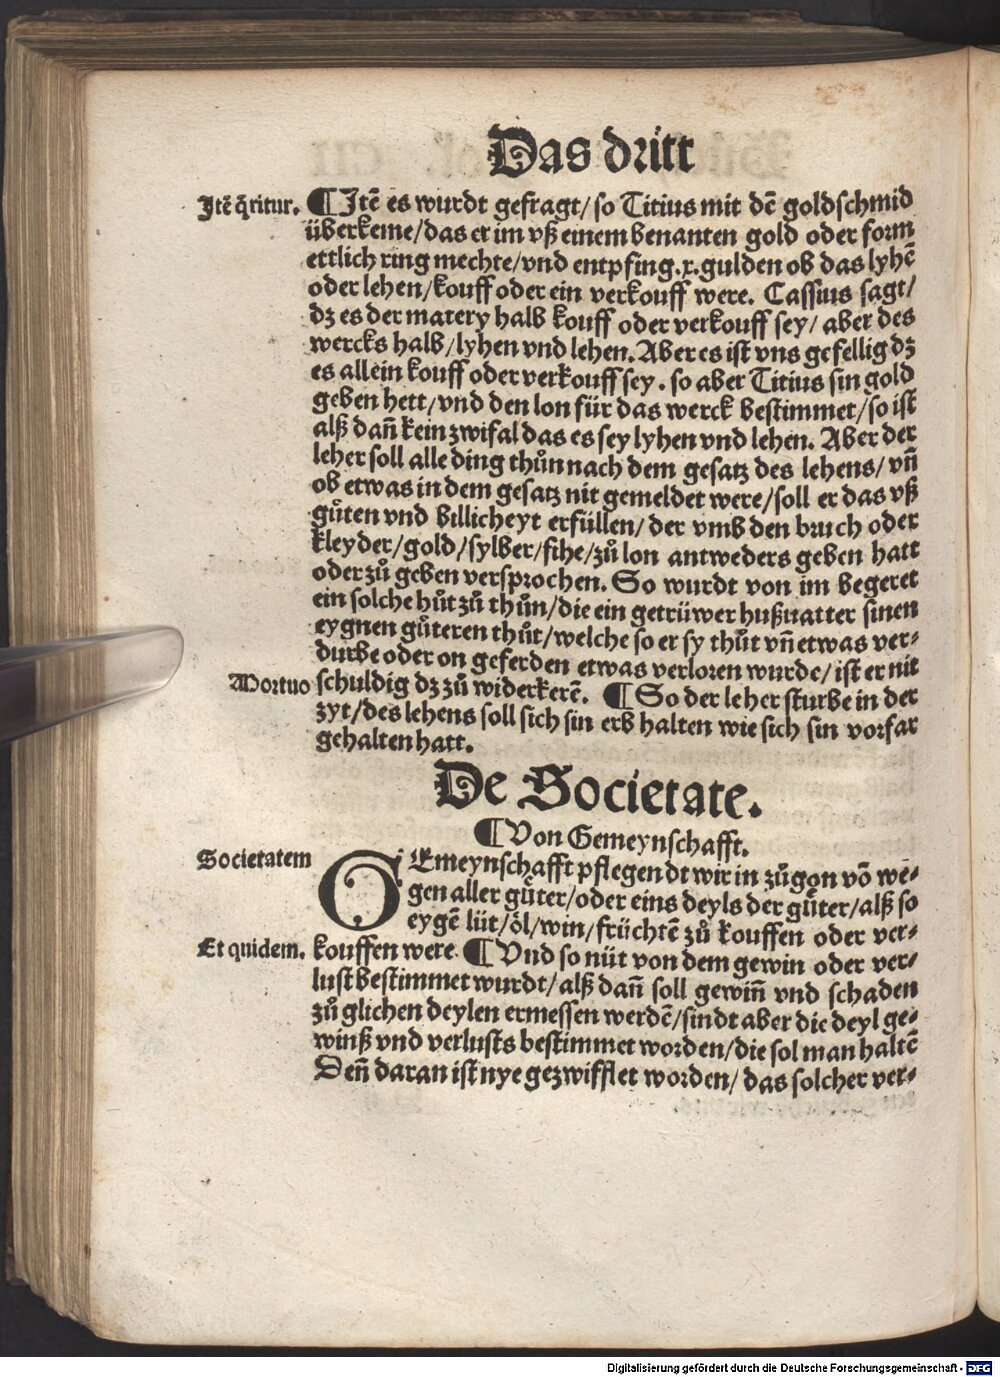 Das dritt
Jtē q̄ritur. ¶Jtē es wurdt gefragt/ so Titius mit dē goldschmid
überkeme/das er im vß einem benanten gold oder form
ettlich ring mechte/vnd entpfing.x.gulden ob das lyhē
oder lehen/kouff oder ein verkouff were. Cassius sagt/
dz es der matery halb kouff oder verkouff sey/ aber des
wercks halb/lyhen vnd lehen. Aber es ist vns gefellig dz
es allein kouff oder verkouff sey. so aber Titius sin gold
geben hett/vnd den lon für das werck bestimmet/so ist
alß dañ kein zwifal das es sey lyhen vnd lehen. Aber der
leher soll alle ding thůn nach dem gesatz des lehens/ vñ
ob etwas in dem gesatz nit gemeldet were/soll er das vß
gůten vnd billicheyt erfüllen/der vmb den bruch oder
kleyder/gold/sylber/fihe/zů lon antweders geben hatt
oder zů geben versprochen. So wurdt von im begeret
ein solche hůt zů thůn/die ein getrüwer hußuatter sinen
eygnen gůteren thůt/welche so er sy thůt vñ etwas ver⸗
durbe oder on geferden etwas verloren wurde/ ist er nit
Mortuo schuldig dz zů widerkerē. ¶So der leher sturbe in der
zyt/des lehens soll sich sin erb halten wie sich sin vorfar
gehalten hatt.
De Societate.
¶Von Gemeynschafft.
Societatem GEmeynschafft pflegendt wir in zůgon vō we⸗
gen aller gůter/oder eins deyls der gůter/alß so
eygē lüt/öl/win/früchtē zů kouffen oder ver⸗
Et quidem. kouffen were. ¶Vnd so nüt von dem gewin oder ver⸗
lust bestimmet wurdt/alß dañ soll gewiñ vnd schaden
zů glichen deylen ermessen werdē/sindt aber die deyl ge⸗
winß vnd verlusts bestimmet worden/die sol man haltē
Deñ daran ist nye gezwifflet worden/ das solcher ver⸗
Digitalisierung gefördert durch die Deutsche Forschungsgemeinschaft - DFG